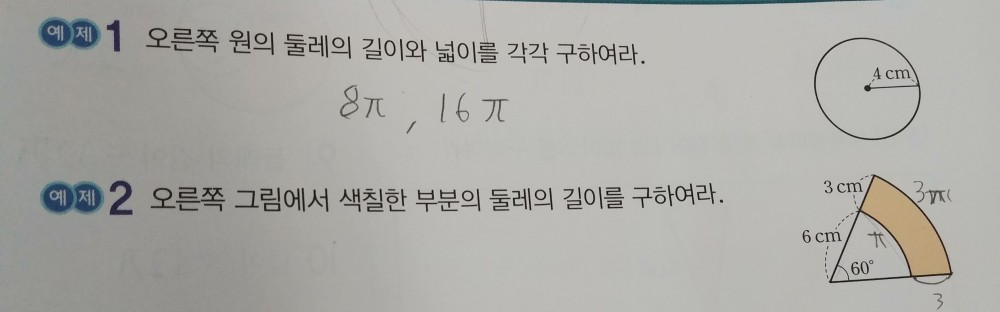 예제 1 오른쪽 원의 둘레의 길이와 넓이를 각각 구하여라.
4 cm
8π , 16 π
예제 2 오른쪽 그림에서 색칠한 부분의 둘레의 길이를 구하여라.
3 cm
π
6 cm
60°
3